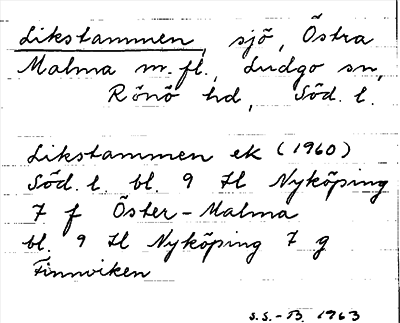 Likstammen, sjö, Östra
Malma m.fl., Ludgo sn,
Rönö hd, Söd. l.
Likstammen ek (1960)
Söd. l. bl. 9 H Nyköping
7 f Öster-Malma
bl. 9 H Nyköping 7 g
Finnviken
S.S.-B. 1963